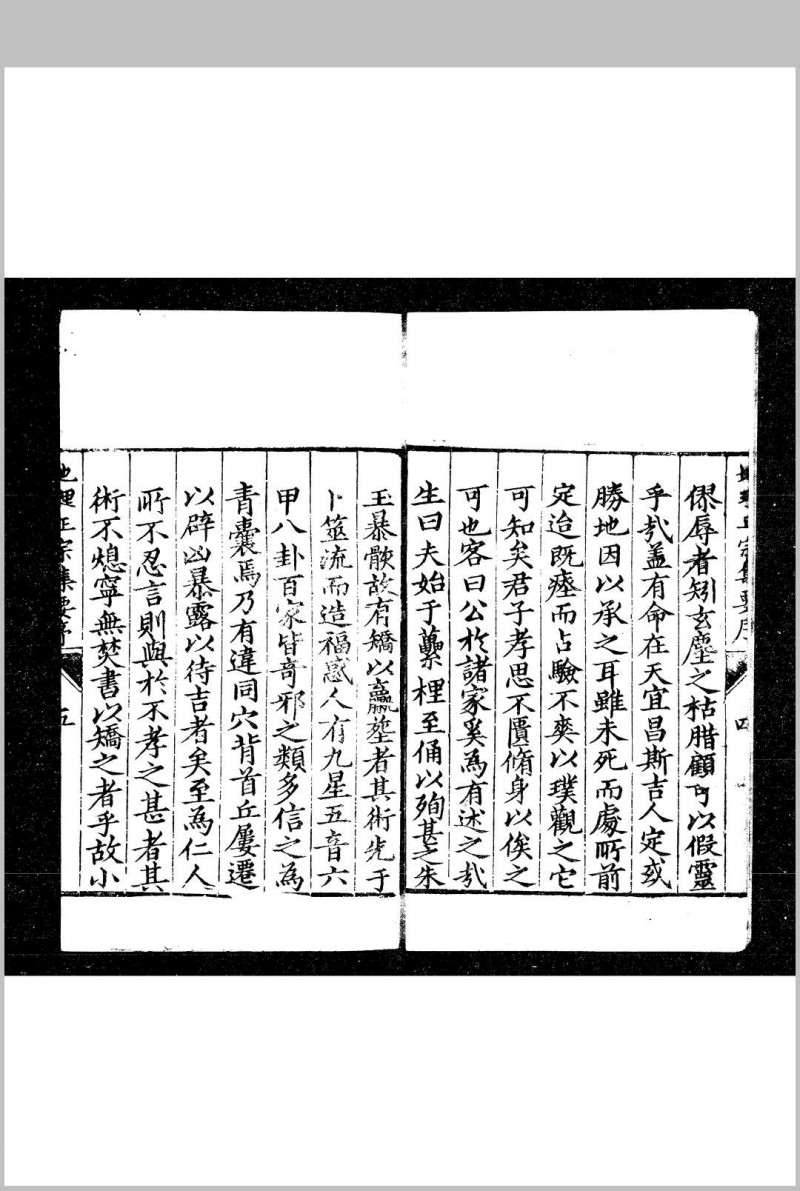 地理正宗集要序
四
僇辱者矧玄塵之枯腊顧可以假靈
乎哉盖有命在天宜昌斯吉人定或
勝地因以承之耳雖未死而處所前
定迨既瘞而占驗不爽以璞觀之它
可知矣君子孝思不匱脩身以俟之
可也客曰公於諸家奚為有述之哉
生曰夫始于虆梩至俑以殉甚之朱
玉暴骸故有矯以臝塟者其術先于
卜筮流而造福惑人有九星五音六
甲八卦百家皆竒邪之類多信之為
青囊焉乃有違同穴背首丘屢遷
以辟凶暴露以待吉者矣至為仁人
所不忍言則與於不孝之甚者其
術不熄寧無焚書以矯之者乎故小
地理正宗集要序
五